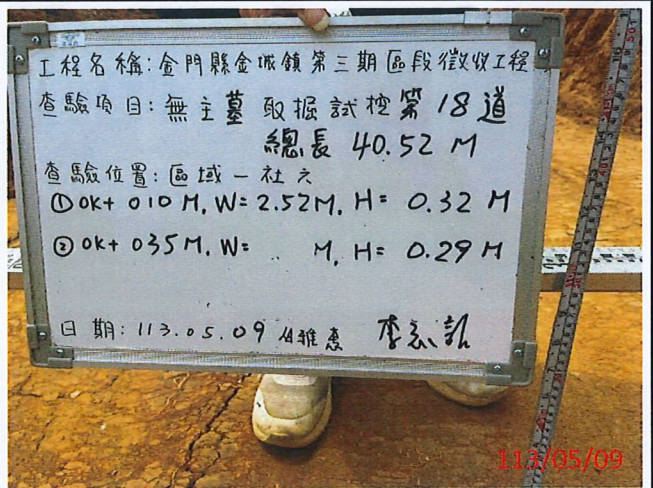 工程名稱:金門縣金城鎮第三期區段徵收工程
查驗項目:無主墓取掘試挖第18道
總長 40.52 M
查驗位置:區域一社六
①0K+010 M, W=2.52M, H= 0.32 M
②0K+035M, W= M, H= 0.29 M
日期:113.05.09
113/05/09